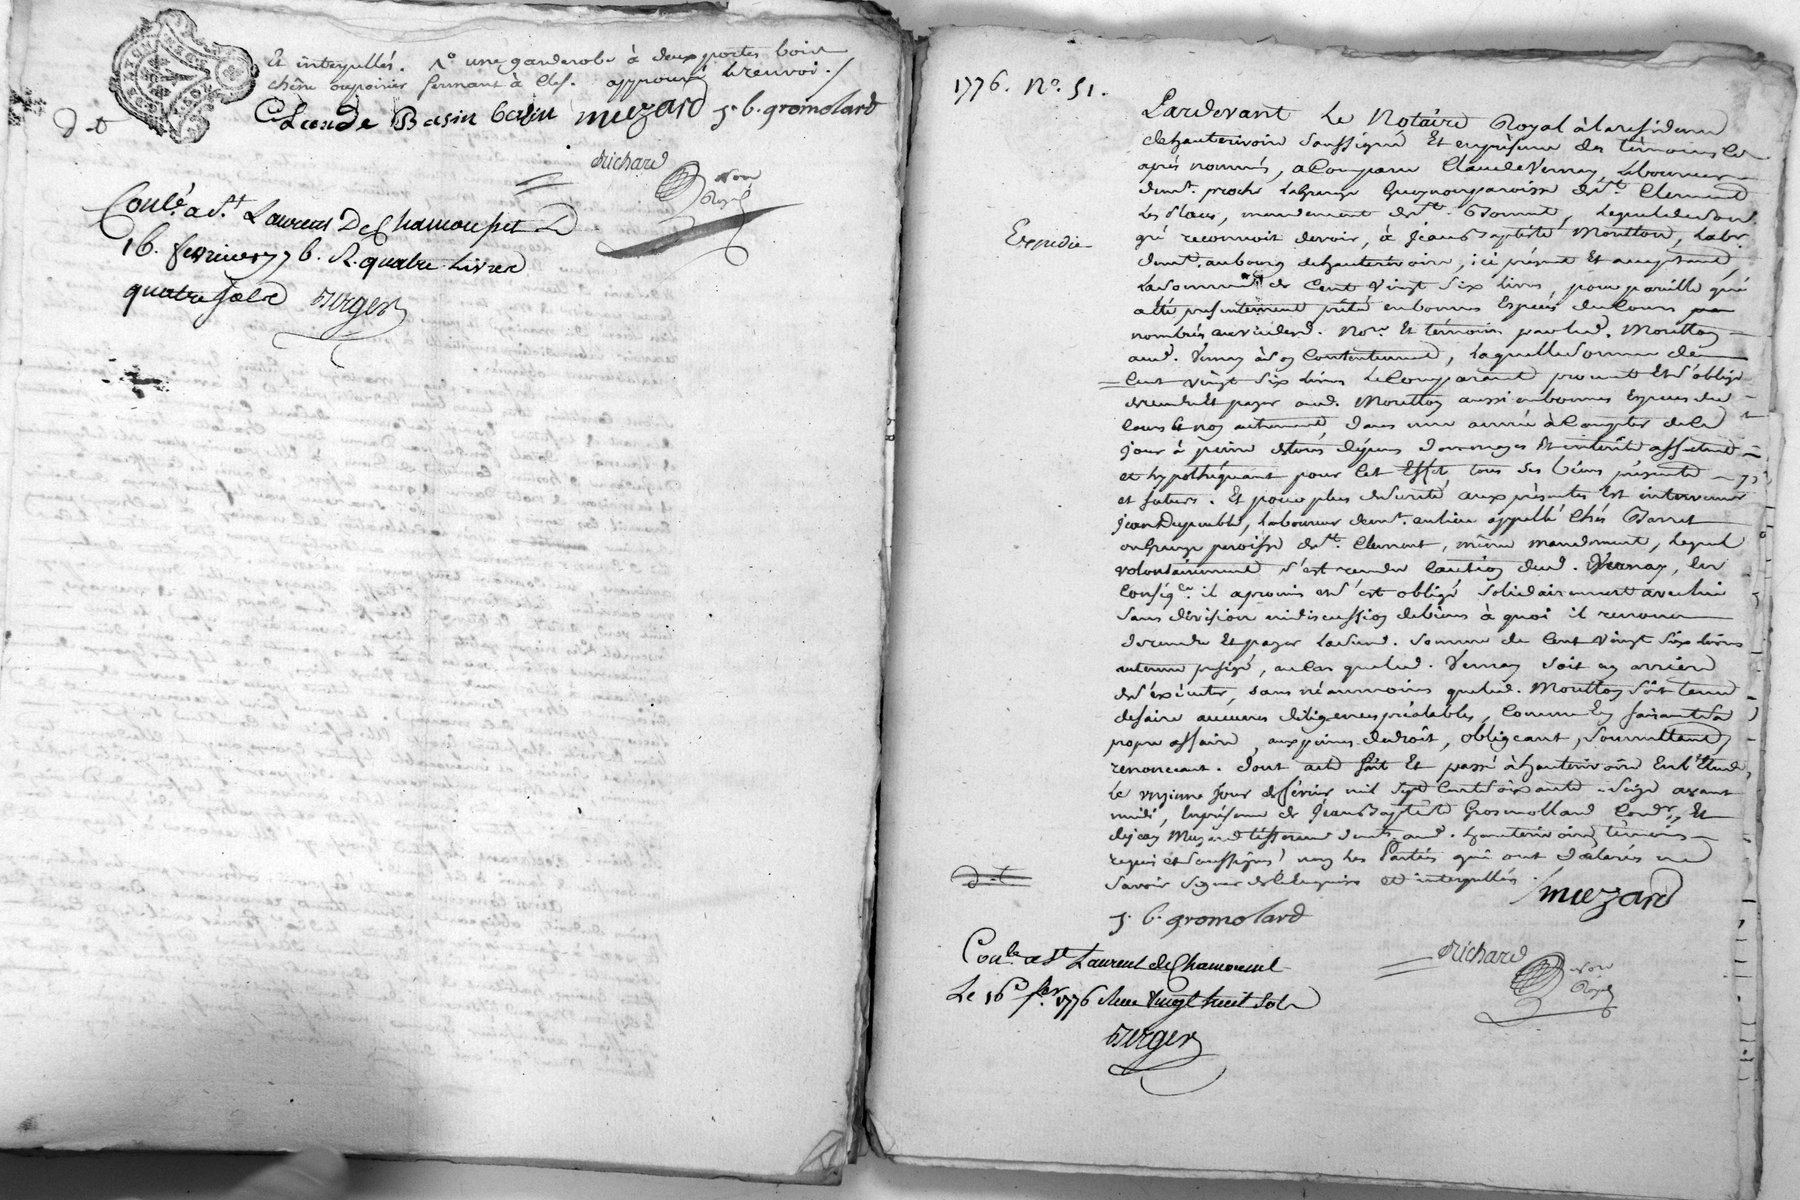 et interpellés. 1º une garderobe à deux portes bois
chêne fermant à clef. approuvé le renvoi ./
d.t
Claude Basin basin muzard J. b. gromolard
Richard
Nore
Royal
Conlé. a St. Laurens De Chamousset Le
16. fevrier 1776. R. quatre Livres
quatre sols Berger
1776. No. 51.
Expedié
Pardevant Le Notaire Royal à la residence
de hauterivoire soussigné Et en presence des témoins cy
après nommés, a comparu Claude Vernay, Laboureur
demt. proche La grange paroisse de St. Clement
Les Places, mandement de St. Bonnet, Lequel de son
gré reconnoit devoir, à Jean Baptiste Moutton, Labr.
demt. au bourg de hauterivoire, ici présent Et acceptant,
La somme de Cent Vingt Six Livres, pour pareille qui
a été présentement prêté en bonnes Especes du Cours
nombrés au vu desd. Nore. Et témoins par led. Moutton
aud. Vernay à son Contentement, Laquelle somme de
Cent vingt six Livres Le Comparant promet Et s'oblige
de rendre Et payer aud. Moutton aussi en bonnes Especes du
Cours Et non autrement dans une année à Compter de Ce
jour à peine de tous dépens dommages Et intérêts affectant
et hypothéquant pour Cet Effet, tous ses biens présents
et futurs. Et pour plus de sureté aux présentes Est intervenu
Jean Dupeuble, Laboureur demt. au lieu appellé Chés Barret
ou grange paroisse de St. Clement, même mandement, Lequel
volontairement s'est rendu Caution dud. Vernay, En
Conséqce. il a promis et s'est obligé solidairement avec lui
sans division ni discussion de biens à quoi il renonce
de rendre Et payer Lad. somme de Cent Vingt Six Livres
au terme présigé, au Cas que led. Vernay soit en arriere
de s'éxécuter, sans néanmoins que led. Moutton soit tenu
de faire aucunes diligences préalables, Comme En faisant sa
propre affaire, aux peines de droit, obligeant, soumettant,
renonceant. dont acte fait Et passé à hauterivoire En l'Etude,
Le onzieme Jour de février mil Sept Cent Soixante - Seize avant
midi, En présence de Jean Baptiste Grosmollard Cordr., Et
de Jean Muzard tisserand demts. aud. hauterivoire témoins
requis et soussignés non Les Parties qui ont déclarés ne
savoir signer de Ce Enquis et interpellés.
d.t
muzard
J. b. gromolard
Richard
Nore
Royal
Conle. a St Laurent de Chamousset
Le 16e fer. 1776 Reçu Vingt huit Sols
Berger